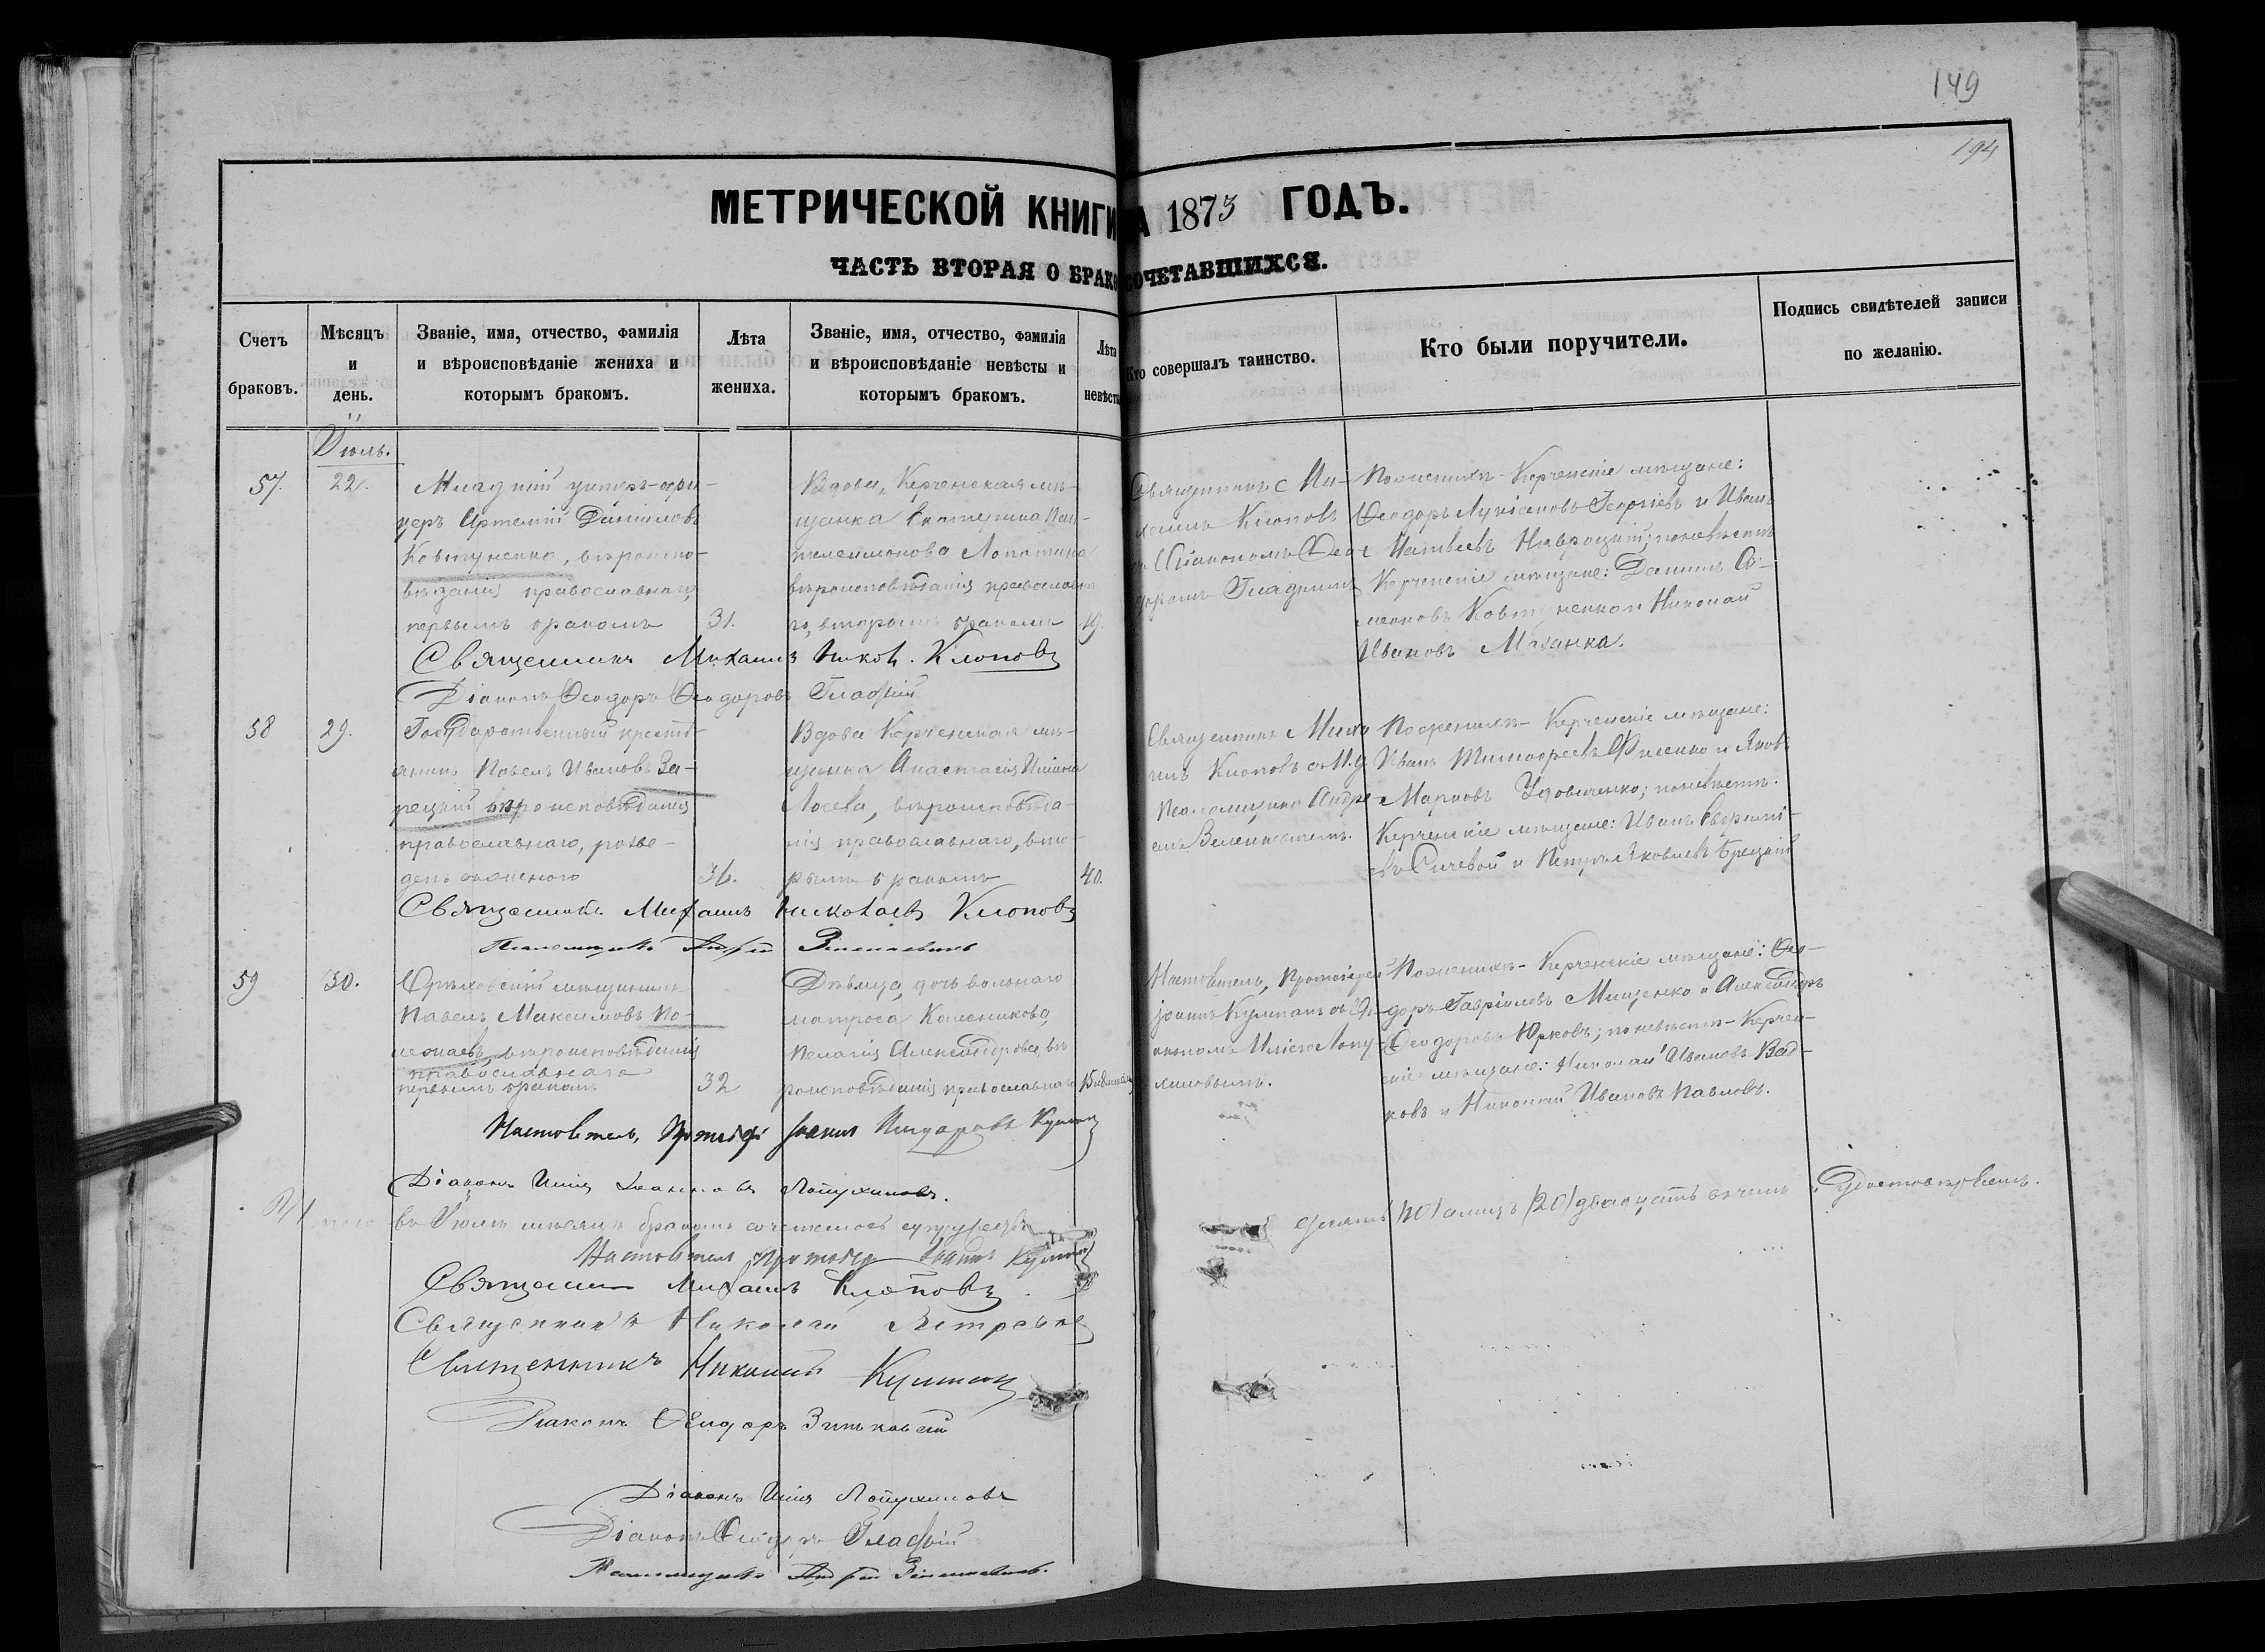 149
194
МЕТРИЧЕСКОЙ КНИГИ НА 1873 ГОДЪ.
ЧАСТЬ ВТОРАЯ О БРАКОСОЧЕТАВШИХСЯ.
Счетъ браковъ.
Мѣсяцъ и день.
Званіе, имя, отчество, фамилія
и вѣроисповѣданіе жениха и
которымъ бракомъ.
Лѣта
жениха.
Званіе, имя, отчество, фамилія
и вѣроисповѣданіе невѣсты и
которымъ бракомъ.
Лѣта
невѣсты
Кто совершалъ таинство.
Кто были поручители.
Подпись свидѣтелей записи
по желанію.
Іюль.
57.
22.
Младшій унтеръ-офи-
церъ Артемій Даніиловъ
Ковтуненко, вѣроиспо-
вѣданія православнаго,
первымъ бракомъ
31.
Вдова, Керченская мѣ-
щанка Екатерина Пан-
телеимонова Лопатина
вѣроисповѣданія православна
го, вторымъ бракомъ
19.
Священникъ Ми-
хаилъ Клоповъ
съ Діакономъ Ѳео-
доромъ Гладкимъ
По женихѣ - Керченскіе мѣщане:
Ѳеодоръ Лукіановъ Георгіевъ и Иванъ
Матвеевъ Навроцкій; по невѣстѣ
Керченскіе мѣщане: Даніилъ Си-
меоновъ Ковтуненко и Николай
Ивановъ Мазанка.
Священникъ Михаилъ Никол. Клоповъ
Діаконъ Ѳеодоръ Ѳеодоровъ Гладкій
58
29.
Государственный кресть-
янинъ Павелъ Ивановъ За-
рецкій вѣроисповѣданія
православнаго,
36.
Вдова Керченская мѣ-
щанка Анастасія Ильина
Лосева, вѣроисповѣда-
нія православнаго, вто-
рымъ бракомъ
40.
Священникъ Миха
илъ Клоповъ
Псаломщикъ Андре-
емъ Зеленкевичемъ.
По женихѣ - Керченскіе мѣщане:
Иванъ Тимофеевъ Фисенко и Яковъ
Марковъ Удовиченко; по невѣстѣ.
Керченскіе мѣщане: Иванъ
Сичевой и Петръ Яковлевъ
Священникъ Михаилъ Николаевъ Клоповъ
Псаломщикъ Андрей Зеленкевичъ
59
30.
Орѣховскій мѣщанинъ
Павелъ Максимовъ По-
лежаевъ, вѣроисповѣданія
православнаго
первымъ бракомъ
32
Дѣвица, дочь вольнаго
матроса Колесникова,
Пелагія Александрова, вѣ
роисповѣданія православнаго
Настоятель, Протоіерей
Іоаннъ Кулпанъ съ Ді-
акономъ Иліею Лопу-
хиновымъ.
По женихѣ - Керченскіе мѣщане: Ѳео-
доръ Гавріиловъ Мищенко и Александръ
Ѳеодоровъ Юрковъ; по невѣстѣ - Керчен-
скіе мѣщане: Николай Ивановъ
и Николай Ивановъ Павловъ.
Настоятель, Протоіерей Іоаннъ
Діаконъ Илія Іоанновъ Лопухиновъ.
въ Іюлѣ мѣсяцѣ бракомъ сочеталось
десять (10) а лицъ (20) двадцать въ чемъ
удостовѣряемъ.
Настоятель Протоіерей Іоаннъ
Священникъ Михаилъ Клоповъ
Священникъ Николай
Священникъ Николай
Діаконъ Ѳеодоръ Зиньковскій
Діаконъ Илія Лопухиновъ
Діаконъ Ѳеодоръ Гладкій
Псаломщикъ Андрей Зеленкевичъ.